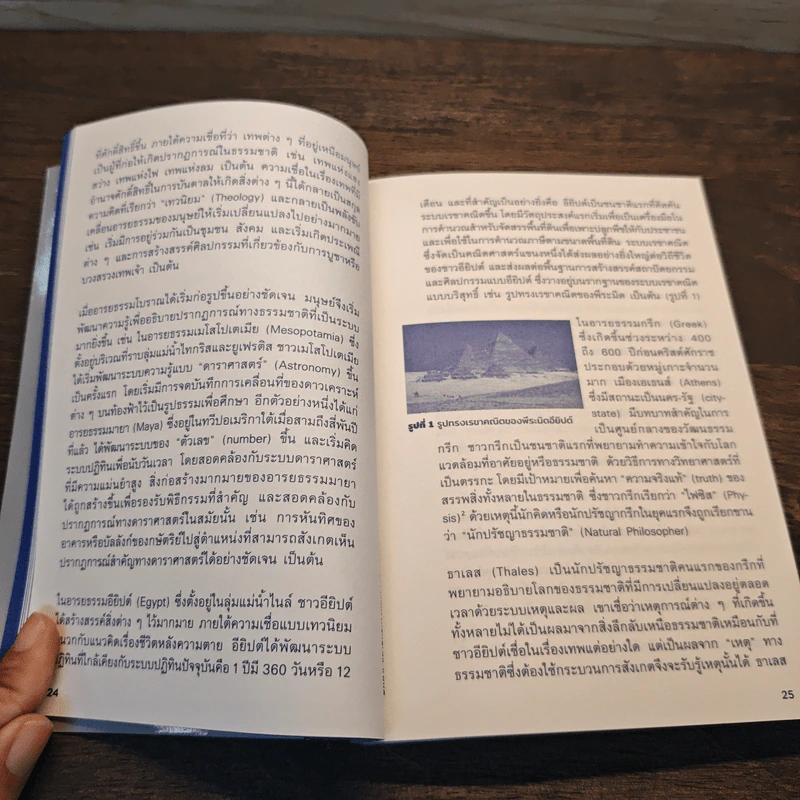 ที่ศักดิ์สิทธิ์ขึ้น ภายใต้ความเชื่อที่ว่า เทพต่าง ๆ ที่อยู่เหนือมนุษย์
เป็นผู้ที่ก่อให้เกิดปรากฏการณ์ในธรรมชาติ เช่น เทพแห่งแสง
สว่าง เทพแห่งไฟ เทพแห่งลม เป็นต้น ความเชื่อในเรื่องเทพที่มี
อำนาจศักดิ์สิทธิ์ในการบันดาลให้เกิดสิ่งต่าง ๆ นี้ได้กลายเป็นสกุล
ความคิดที่เรียกว่า "เทวนิยม" (Theology) และกลายเป็นพลังขับ
เคลื่อนอารยธรรมของมนุษย์ให้เริ่มเปลี่ยนแปลงไปอย่างมากมาย
เช่น เริ่มมีการอยู่ร่วมกันเป็นชุมชน สังคม และเริ่มเกิดประเพณี
ต่าง ๆ และการสร้างสรรค์ศิลปกรรมที่เกี่ยวข้องกับการบูชาหรือ
บวงสรวงเทพเจ้า เป็นต้น
เมื่ออารยธรรมโบราณได้เริ่มก่อรูปขึ้นอย่างชัดเจน มนุษย์จึงเริ่ม
พัฒนาความรู้เพื่ออธิบายปรากฏการณ์ทางธรรมชาติที่เป็นระบบ
มากยิ่งขึ้น เช่น ในอารยธรรมเมโสโปเตเมีย (Mesopotamia) ซึ่ง
ตั้งอยู่บริเวณที่ราบลุ่มแม่น้ำไทกริสและยูเฟรติส ชาวเมโสโปเตเมีย
ได้เริ่มพัฒนาระบบความรู้แบบ "ดาราศาสตร์" (Astronomy) ขึ้น
เป็นครั้งแรก โดยเริ่มมีการจดบันทึกการเคลื่อนที่ของดาวเคราะห์
ต่าง ๆ บนท้องฟ้าไว้เป็นรูปธรรมเพื่อศึกษา อีกตัวอย่างหนึ่งได้แก่
อารยธรรมมายา (Maya) ซึ่งอยู่ในทวีปอเมริกาใต้เมื่อสามถึงสี่พันปี
ที่แล้ว ได้พัฒนาระบบของ "ตัวเลข" (number) ขึ้น และเริ่มคิด
ระบบปฏิทินเพื่อนับวันเวลา โดยสอดคล้องกับระบบดาราศาสตร์
ที่มีความแม่นยำสูง สิ่งก่อสร้างมากมายของอารยธรรมมายา
ได้ถูกสร้างขึ้นเพื่อรองรับพิธีกรรมที่สำคัญ และสอดคล้องกับ
ปรากฏการณ์ทางดาราศาสตร์ในสมัยนั้น เช่น การหันทิศของ
อาคารหรือบัลลังก์ของกษัตริย์ไปสู่ตำแหน่งที่สามารถสังเกตเห็น
ปรากฏการณ์สำคัญทางดาราศาสตร์ได้อย่างชัดเจน เป็นต้น
ในอารยธรรมอียิปต์ (Egypt) ซึ่งตั้งอยู่ในลุ่มแม่น้ำไนล์ ชาวอียิปต์
ได้สร้างสรรค์สิ่งต่าง ๆ ไว้มากมาย ภายใต้ความเชื่อแบบเทวนิยม
ผนวกกับแนวคิดเรื่องชีวิตหลังความตาย อียิปต์ได้พัฒนาระบบ
ปฏิทินที่ใกล้เคียงกับระบบปฏิทินปัจจุบันคือ 1 ปีมี 360 วันหรือ 12
24
เดือน และที่สำคัญเป็นอย่างยิ่งคือ อียิปต์เป็นชนชาติแรกที่คิดค้น
ระบบเรขาคณิตขึ้น โดยมีวัตถุประสงค์แรกเริ่มเพื่อเป็นเครื่องมือใน
การคำนวณสำหรับจัดสรรพื้นที่ดินเพื่อเพาะปลูกพืชให้กับประชาชน
และเพื่อใช้ในการคำนวณภาษีตามขนาดพื้นที่ดิน ระบบเรขาคณิต
ซึ่งจัดเป็นคณิตศาสตร์แขนงหนึ่งได้ส่งผลอย่างยิ่งใหญ่ต่อวิถีชีวิต
ของชาวอียิปต์ และส่งผลต่อพื้นฐานการสร้างสรรค์สถาปัตยกรรม
และศิลปกรรมแบบอียิปต์ ซึ่งวางอยู่บนรากฐานของระบบเรขาคณิต
แบบบริสุทธิ์ เช่น รูปทรงเรขาคณิตของพีระมิด เป็นต้น (รูปที่ 1)
รูปที่ 1 รูปทรงเรขาคณิตของพีระมิดอียิปต์
ในอารยธรรมกรีก (Greek)
ซึ่งเกิดขึ้นช่วงระหว่าง 400
ถึง 600 ปีก่อนคริสต์ศักราช
ประกอบด้วยหมู่เกาะจำนวน
มาก เมืองเอเธนส์ (Athens)
ซึ่งมีสถานะเป็นนคร-รัฐ (city-
state) มีบทบาทสำคัญในการ
เป็นศูนย์กลางของวัฒนธรรม
กรีก ชาวกรีกเป็นชนชาติแรกที่พยายามทำความเข้าใจกับโลก
แวดล้อมที่อาศัยอยู่หรือธรรมชาติ ด้วยวิธีการทางวิทยาศาสตร์ที่
เป็นตรรกะ โดยมีเป้าหมายเพื่อค้นหา "ความจริงแท้" (truth) ของ
สรรพสิ่งทั้งหลายในธรรมชาติ ซึ่งชาวกรีกเรียกว่า "ไฟซิส" (Phy-
sis)² ด้วยเหตุนี้นักคิดหรือนักปรัชญากรีกในยุคแรกจึงถูกเรียกขาน
ว่า "นักปรัชญาธรรมชาติ" (Natural Philosopher)
ธาเลส (Thales) เป็นนักปรัชญาธรรมชาติคนแรกของกรีกที่
พยายามอธิบายโลกของธรรมชาติที่มีการเปลี่ยนแปลงอยู่ตลอด
เวลาด้วยระบบเหตุและผล เขาเชื่อว่าเหตุการณ์ต่าง ๆ ที่เกิดขึ้น
ทั้งหลายไม่ได้เป็นผลมาจากสิ่งลึกลับเหนือธรรมชาติเหมือนกับที่
ชาวอียิปต์เชื่อในเรื่องเทพแต่อย่างใด แต่เป็นผลจาก "เหตุ" ทาง
ธรรมชาติซึ่งต้องใช้กระบวนการสังเกตจึงจะรับรู้เหตุนั้นได้ ธาเลส
25